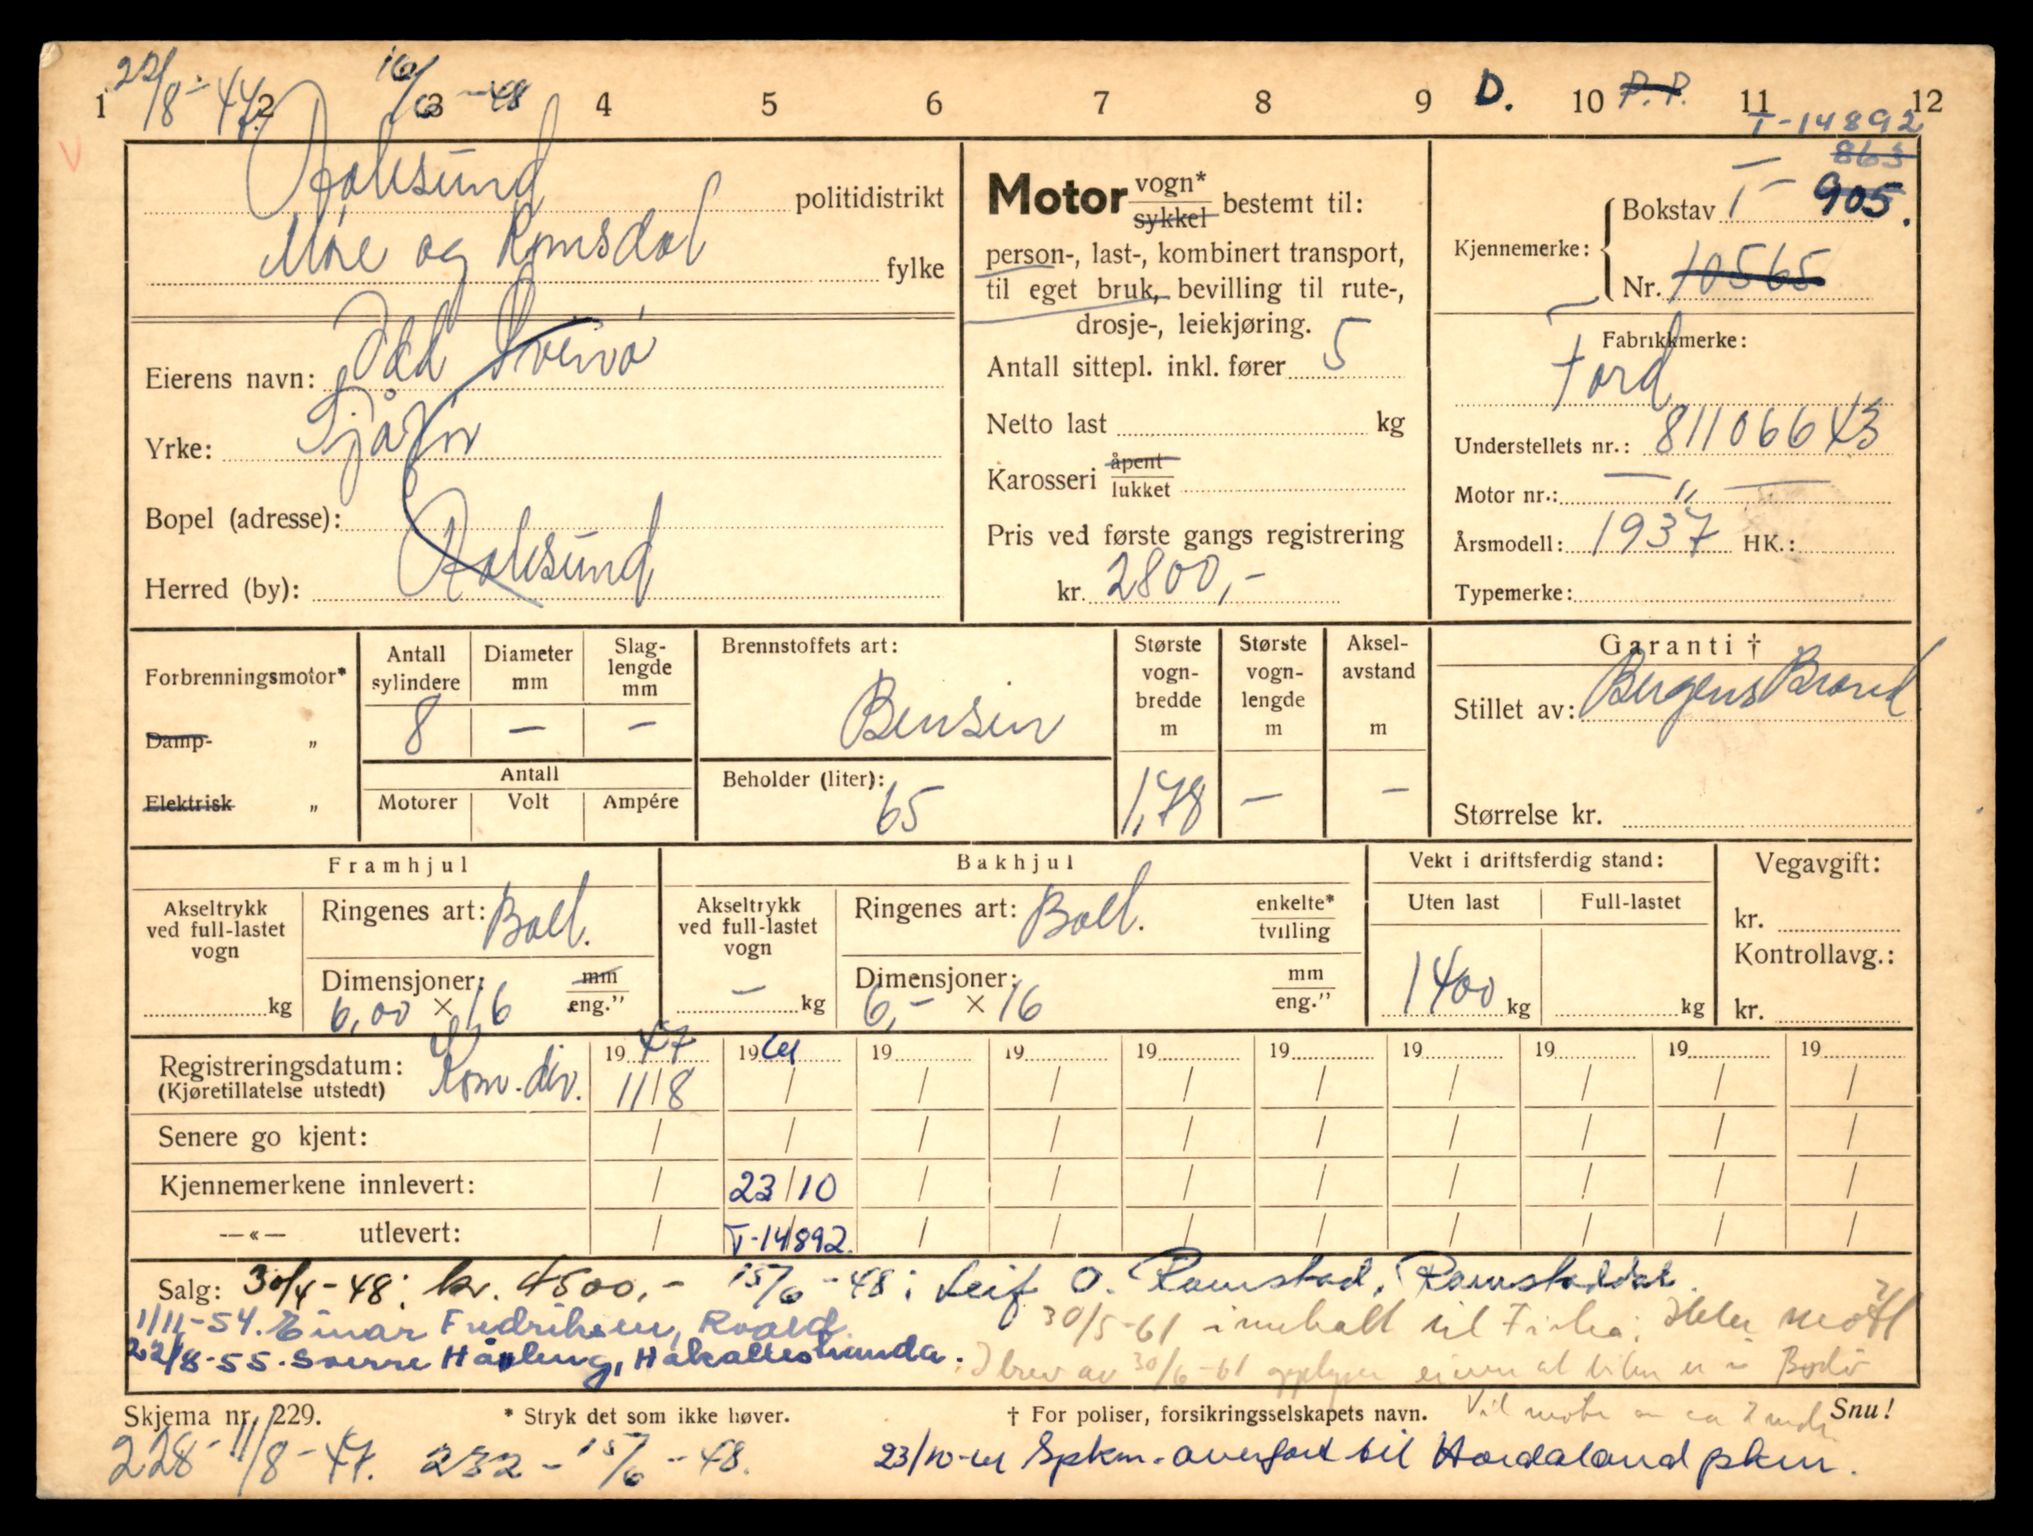 22/8-47. 16/6-48
1 2 3 4 5 6 7 8 9 D. 10 P.P. 11 12
T-14892
863
Aalesund politidistrikt
Møre og Romsdal fylke
Eierens navn: Odd
Yrke: Sjåfør
Bopel (adresse):
Herred (by): Aalesund
Motor vogn* sykkel bestemt til:
person-, last-, kombinert transport,
til eget bruk, bevilling til rute-,
drosje-, leiekjøring.
Antall sittepl. inkl. fører 5
Netto last kg
Karosseri åpent lukket
Pris ved første gangs registrering
kr. 2800,-
Kjennemerke: Bokstav T - 905.
Nr. 10565
Fabrikkmerke:
Ford
Understellets nr.: 81106643
Motor nr.: — " —
Årsmodell: 1937 HK.:
Typemerke:
Forbrenningsmotor*
Damp- „
Elektrisk „
Antall sylindere 8
Diameter mm —
Slaglengde mm —
Antall
Motorer Volt Ampére
Brennstoffets art:
Bensin
Beholder (liter): 65
Største vogn-bredde m 1,78
Største vogn-lengde m —
Aksel-avstand m —
Garanti †
Stillet av: Bergens Brand
Størrelse kr.
Framhjul
Akseltrykk ved full-lastet vogn kg
Ringenes art: Ball.
Dimensjoner: 6,00 × 16 mm eng."
Bakhjul
Akseltrykk ved full-lastet vogn — kg
Ringenes art: Ball. enkelte* tvilling
Dimensjoner: 6,- × 16 mm eng."
Vekt i driftsferdig stand:
Uten last Full-lastet
1400 kg kg
Vegavgift:
kr.
Kontrollavg.:
kr.
Registreringsdatum: 1947 1961 19 19 19 19 19 19 19 19
(Kjøretillatelse utstedt) Kom. div. 11/8 / / / / / / / / /
Senere go kjent: / / / / / / / / / /
Kjennemerkene innlevert: / 23/10 / / / / / / / /
—«— utlevert: / T-14892. / / / / / / / /
Salg: 30/4-48: kr. 4500,- 15/6-48: Leif O. Ramstad, Ramstaddal.
1/11-54. Einar Fredriksen, Roald. 30/5-61 innkalt til Fiskå: Ikke møtt
22/8-55. Sverre Håvling, Håkallestranda. I brev av 30/6-61 opplyser eieren at bilen er i Bodø
Skjema nr. 229. * Stryk det som ikke høver. † For poliser, forsikringsselskapets navn. Vil møte om ca 2 mndr. Snu!
228 - 11/8-47. 232 - 15/6-48. 23/10-61 Spkm. overført til Hordaland pkm.